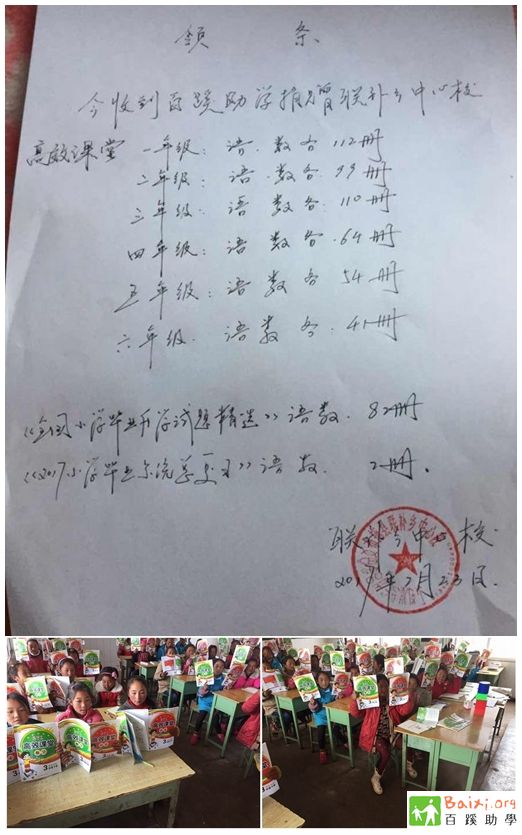 领 条
今收到百蹊助学捐赠联补乡中心校
高效课堂 一年级: 语.数各 112册
二年级: 语 数各 99册
三年级: 语 数各 110册
四年级: 语 数各 64册
五年级: 语 数各 54册
六年级: 语 数各 41册
《全国小学毕业升学试题精选》语数. 82册
《2017小学毕业系统总复习》语数. 2册.
联补乡中心校
2017年2月23日.
高效课堂
3
3
Baixi.org
百蹊助學